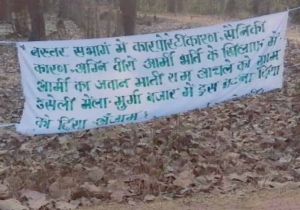 बस्तर संभाग में कारपोरेटीकरण-सैनिकी
करण-अग्नि वीरों आर्मी भर्ति के खिलाफ में
आर्मी का जवान मोती राम आचले को ग्राम
उसेली मेला-मुर्गा बजार में इस घटना दिया
को दिया अंजाम